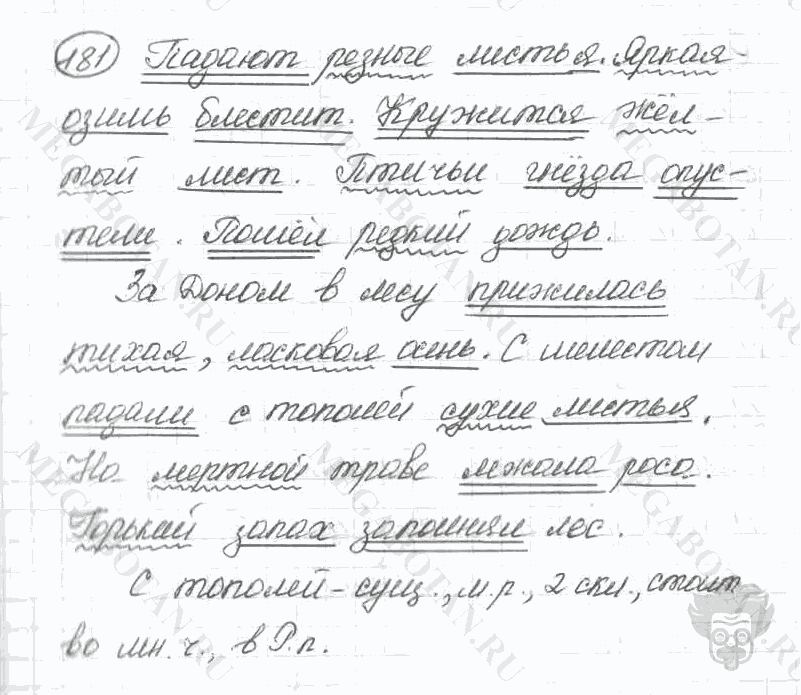 181 Падают резные листья. Яркая
озимь блестит. Кружится жёл-
тый лист. Птичьи гнёзда опус-
тели. Пошёл редкий дождь.
За Доном в лесу прижилась
тихая, ласковая осень. С шелестом
падали с тополей сухие листья.
На мертной траве лежала роса.
Горький запах заполнял лес.
С тополей - сущ., м.р., 2 скл., стоит
во мн. ч., в Р.п.
MEGABOTAN.RU